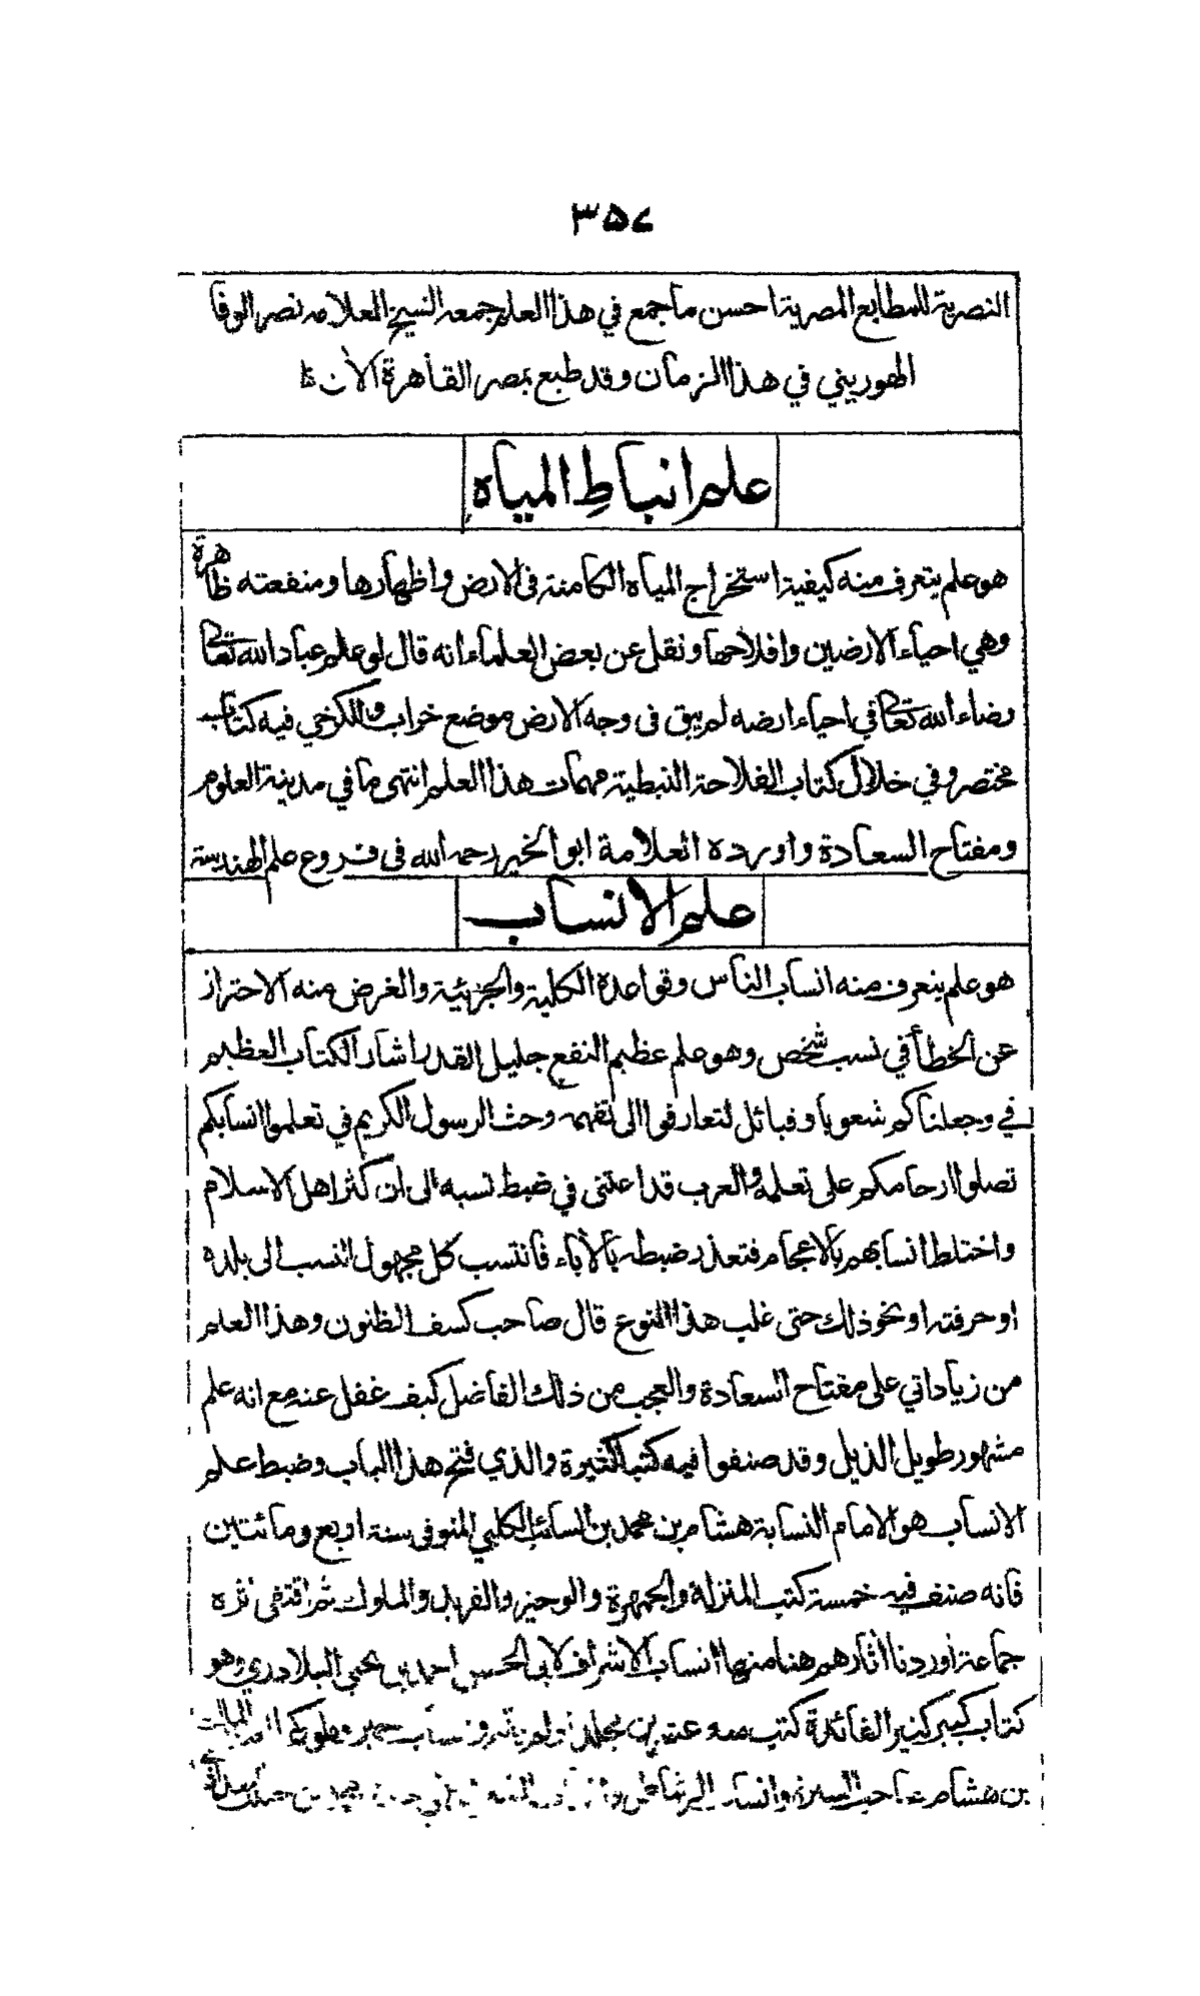 ٣٥٧
النصرية للمطابع المصرية احسن ما جمع في هذا العلم جمعه الشيخ العلامه نصر الوفا
الهوريني في هذا الزمان وقد طبع بمصر القاهرة الآن
علم انباط المياه
هو علم يتعرف منه كيفية استخراج المياه الكامنة فى الارض واظهارها ومنفعته ظاهرة
وهي احياء الارضين وافلاحها ونقل عن بعض العلماء انه قال لو علم عباد الله تعالى
رضاء الله تعالى في احياء ارضه لم يبق فى وجه الارض موضع خراب وللكرخي فيه كتاب
مختصر وفي خلال كتاب الفلاحة النبطية مهمات هذا العلم انتهى ما في مدينة العلوم
ومفتاح السعادة واورده العلامة ابو الخير رحمه الله فى فروع علم الهندسة
علم الانساب
هو علم يتعرف منه انساب الناس وقواعده الكلية والجزئية والغرض منه الاحتراز
عن الخطأ في نسب شخص وهو علم عظيم النفع جليل القدر اشار الكتاب العظيم
في وجعلناكم شعوبا وقبائل لتعارفوا الى تفهمه وحث الرسول الكريم في تعلموا انسابكم
تصلوا ارحامكم على تعلمه والعرب قد اعتنى في ضبط نسبه الى ان كثر اهل الاسلام
واختلط انسابهم بالاعجام فتعذر ضبطه بالأباء فانتسب كل مجهول النسب الى بلده
او حرفته او نحو ذلك حتى غلب هذا النوع قال صاحب كسف الظنون وهذا العلم
من زياداتي على مفتاح السعادة والعجب من ذلك الفاضل كيف غفل عنه مع انه علم
مشهور طويل الذيل وقد صنفوا فيه كتبا كثيرة والذي فتح هذا الباب وضبط علم
الانساب هو الامام النسابة هشام بن محمد بن السائب الكلبي المتوفى سنة اربع ومائتين
فانه صنف فيه خمسة كتب المنزلة والجمهرة والوجيز والفريد والملوك ثم اقتفى اثره
جماعة اوردنا اثارهم هنا منها انساب الاشراف لابي الحسن احمد بن يحيى البلادري وهو
كتاب كبير كثير الفائدة كتب منه عشرين مجلدا ولم يتم وانساب حمير وملوكها
بن هشام صاحب السيرة وانساب الرشاطي